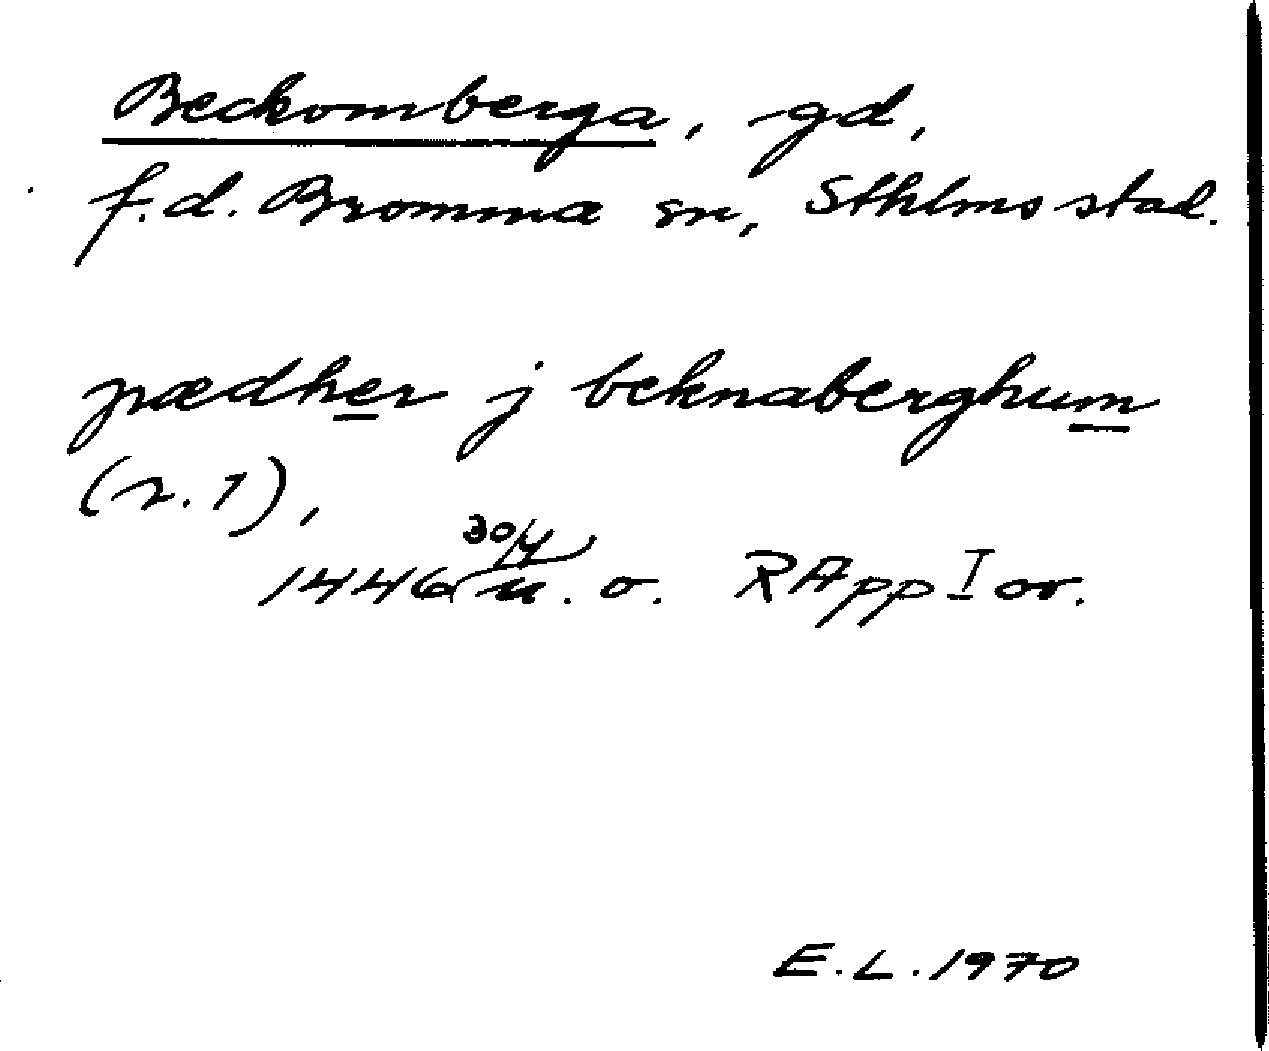 Beckomberga, gd,
f.d. Bromma sn, Sthlms stad.
pædher j beknaberghum
(r. 1),
1446 30/4 u. o. RApp I or.
E.L. 1970